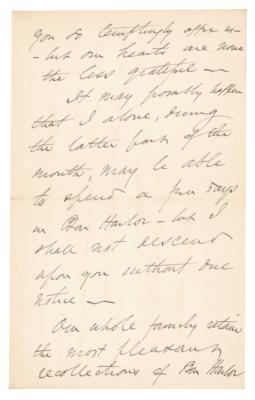 you do temptingly offer us -
- but our hearts are none
the less grateful —
It may possibly happen
that I alone, during
the latter part of the
month, may be able
to spend a few days
in Bar Harbor - but I
shall not descend
upon you without due
notice —
Our whole family retain
the most pleasant
recollections of Bar Harbor